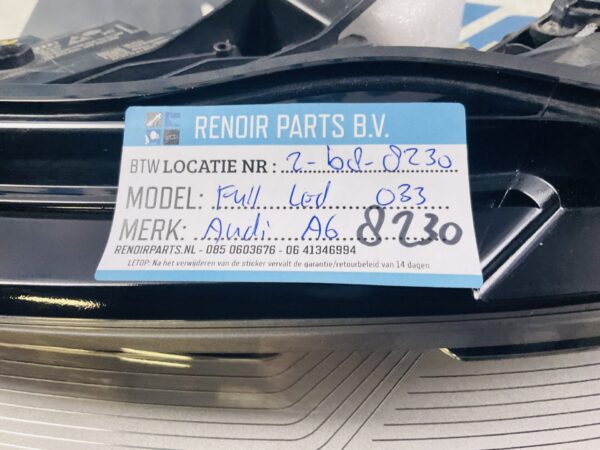 RENOIR PARTS B.V.
BTW LOCATIE NR : 2-bd-8230
MODEL: Full Led 033
MERK: Audi A6 8230
RENOIRPARTS.NL - 085 0603676 - 06 41346994
LETOP: Na het verwijderen van de sticker vervalt de garantie/retourbeleid van 14 dagen